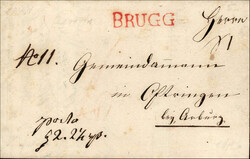 BRUGG
Herrn
No 11.
Gemeindamann
in Oftringen
bey Arburg
porto